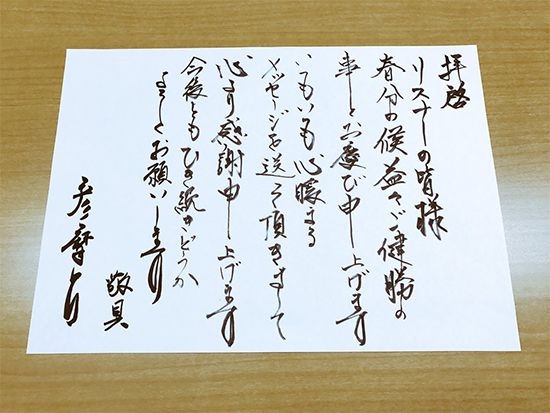 拝啓
リスナーの皆様
春分の候益々ご健勝の
事とお慶び申し上げます
いつもいつも心暖まる
メッセージを送って頂きまして
心より感謝申し上げます
今後ともひき続きどうか
よろしくお願いします
敬具
彦摩呂